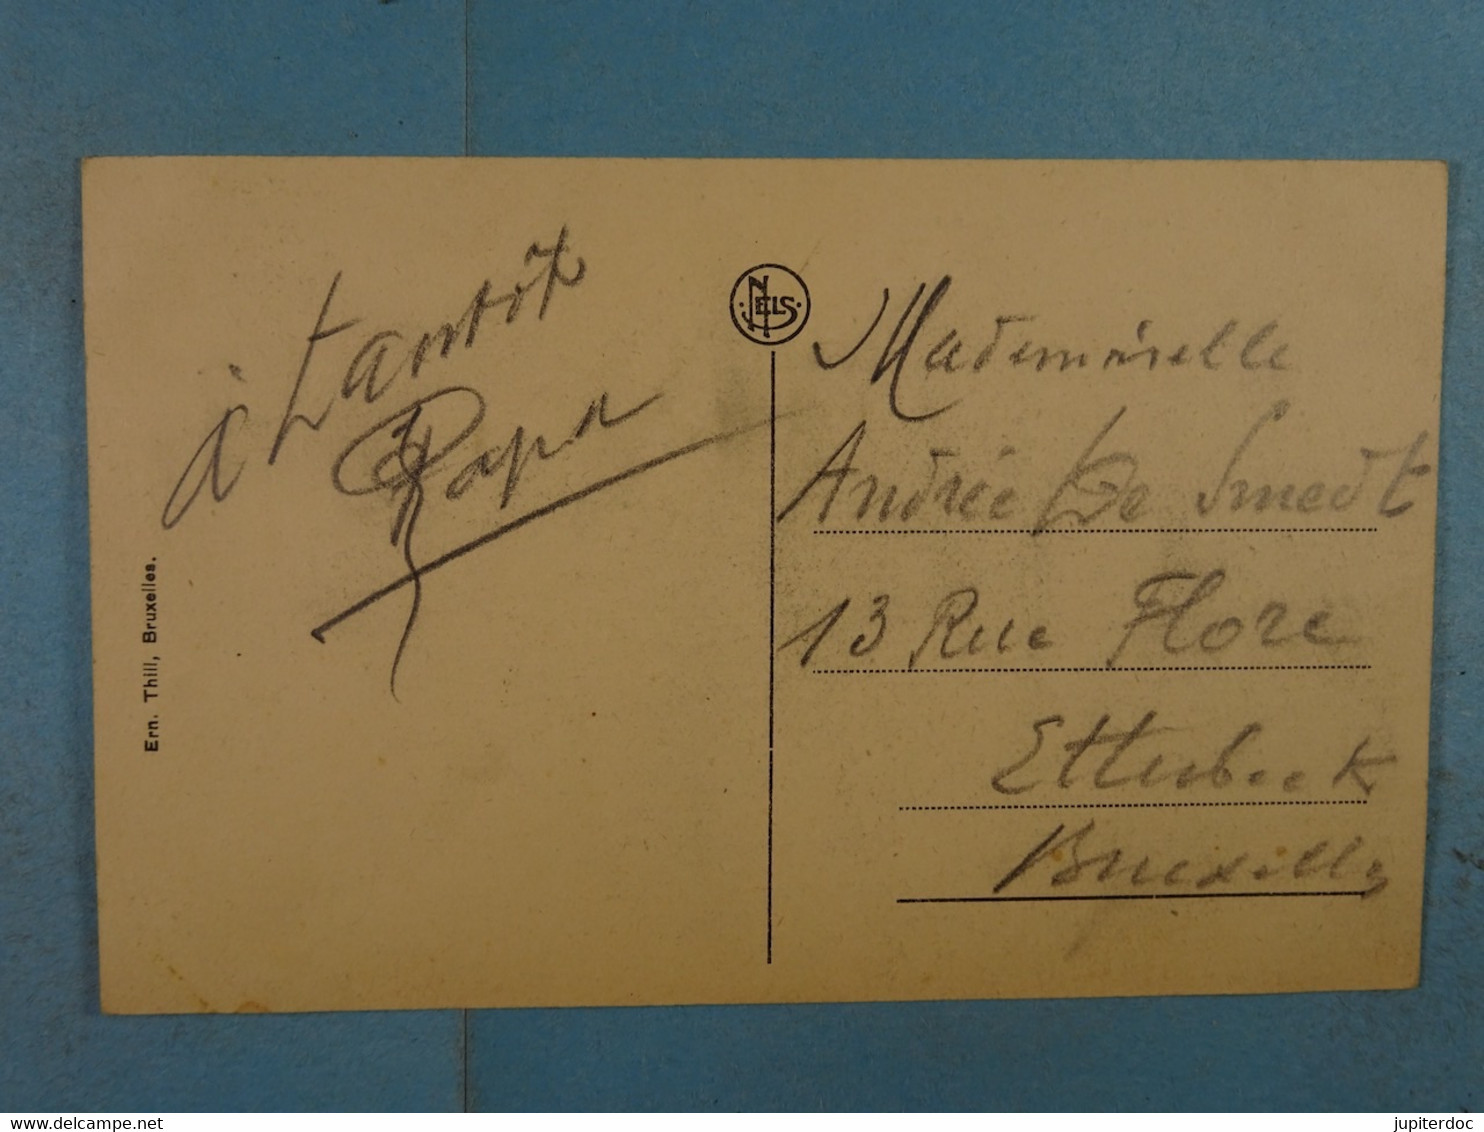 à tantôt
Papa
Ern. Thill, Bruxelles.
NELS
Mademoiselle
Andrée De Smedt
13 Rue Flore
Etterbeek
Bruxelles
www.delcampe.net
jupiterdoc